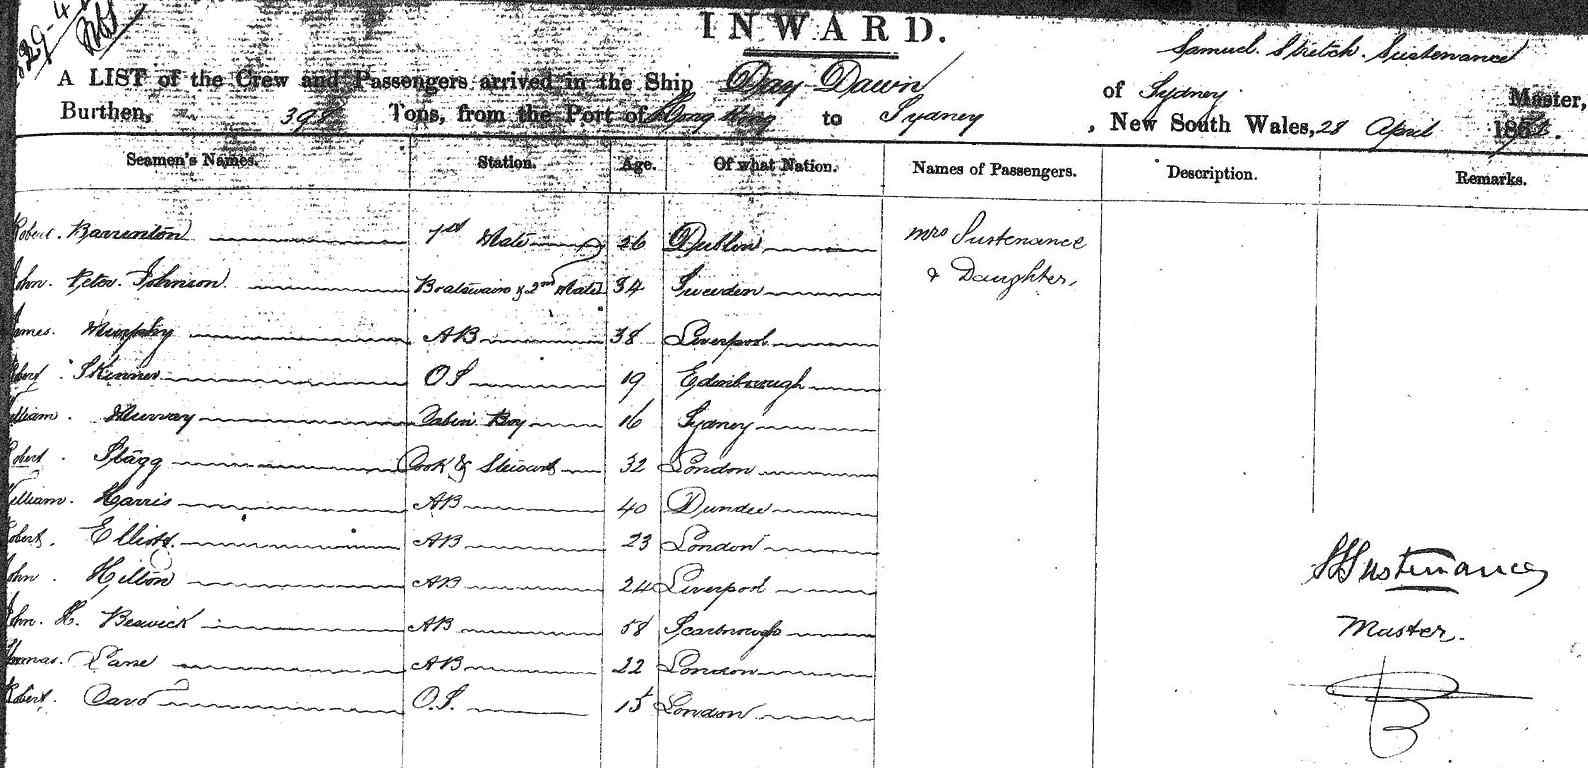 29-4
INWARD.
Samuel Stretch Sustenance
A LIST of the Crew and Passengers arrived in the Ship Day-Dawn of Sydney Master,
Burthen, 398 Tons, from the Port of Hong Kong to Sydney, New South Wales, 28 April 186
Seamen's Names. Station. Age. Of what Nation. Names of Passengers. Description. Remarks.
Robert. Barrinton 1st Mate 26 Dublin Mrs Sustenance
John. Peter. Johnson Boatswain & 2nd Mate 34 Sweeden & Daughter,
James. Murphy AB 38 Liverpool
Robert Skinner OS 19 Edinborough
William. Murray Cabin Boy 16 Sydney
Robert. Stagg Cook & Steward 32 London
William. Harris AB 40 Dundee
Robert. Elliott. AB 23 London
John Hilton AB 24 Liverpool
John. H. Beswick AB 58 Scarborough
Thomas. Lane AB 22 London
Robert. O.S. 15 London
SSSustenance
Master.